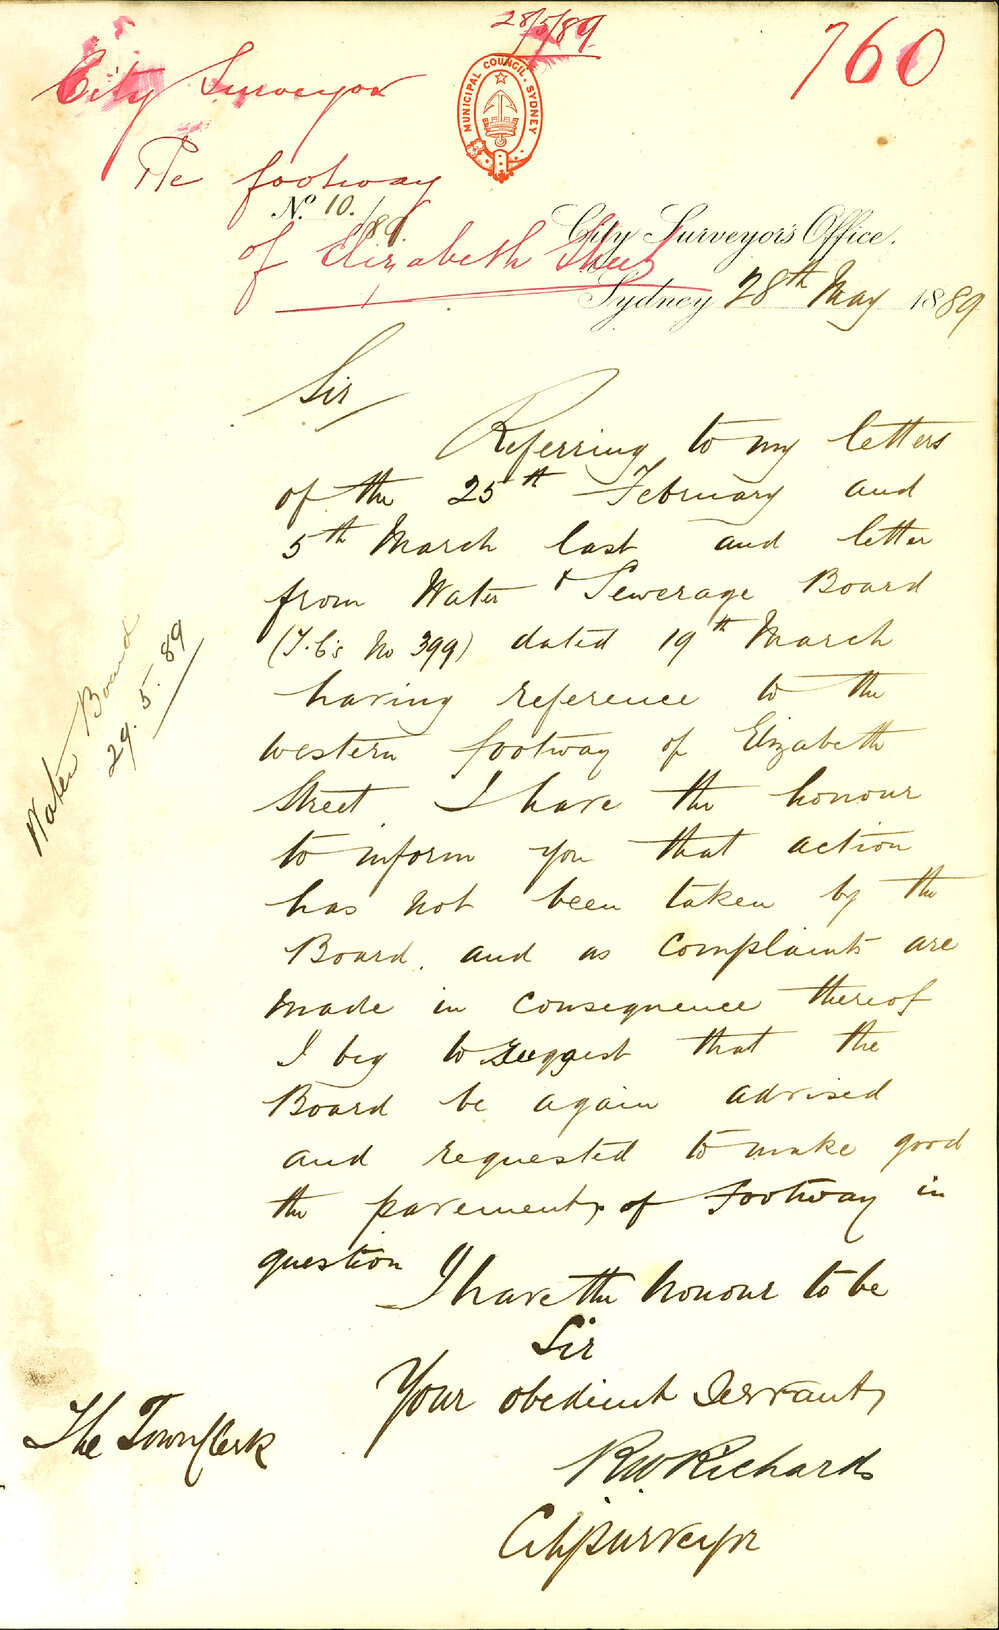 28/5/89.
760
City Surveyor
MUNICIPAL COUNCIL · SYDNEY
Re footway
No. 10./89.
of Elizabeth Street
City Surveyor's Office.
Sydney 28th May 1889
Sir
Referring to my letters
of the 25th February and
5th March last and letter
from Water & Sewerage Board
(T.C's No 399) dated 19th March
having reference to the
western footway of Elizabeth
Street I have the honour
to inform you that action
has not been taken by the
Board. and as complaints are
made in consequence thereof
I beg to suggest that the
Board be again advised
and requested to make good
the pavement, of Footway in
question
I have the honour to be
Sir
Your obedient Servant,
R W Richards
City Surveyor
The Town Clerk
Water Board
29.5.89